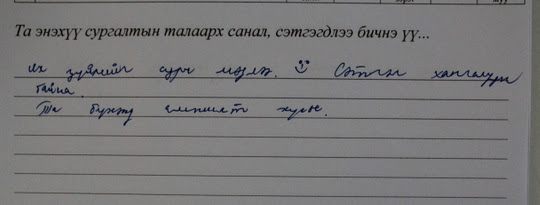 Та энэхүү сургалтын талаарх санал, сэтгэгдлээ бичнэ үү...
их зүйлийг сурч мэдлээ. Сэтгэл хангалуун
байна.
Та бүхэнд амжилт хүсье.